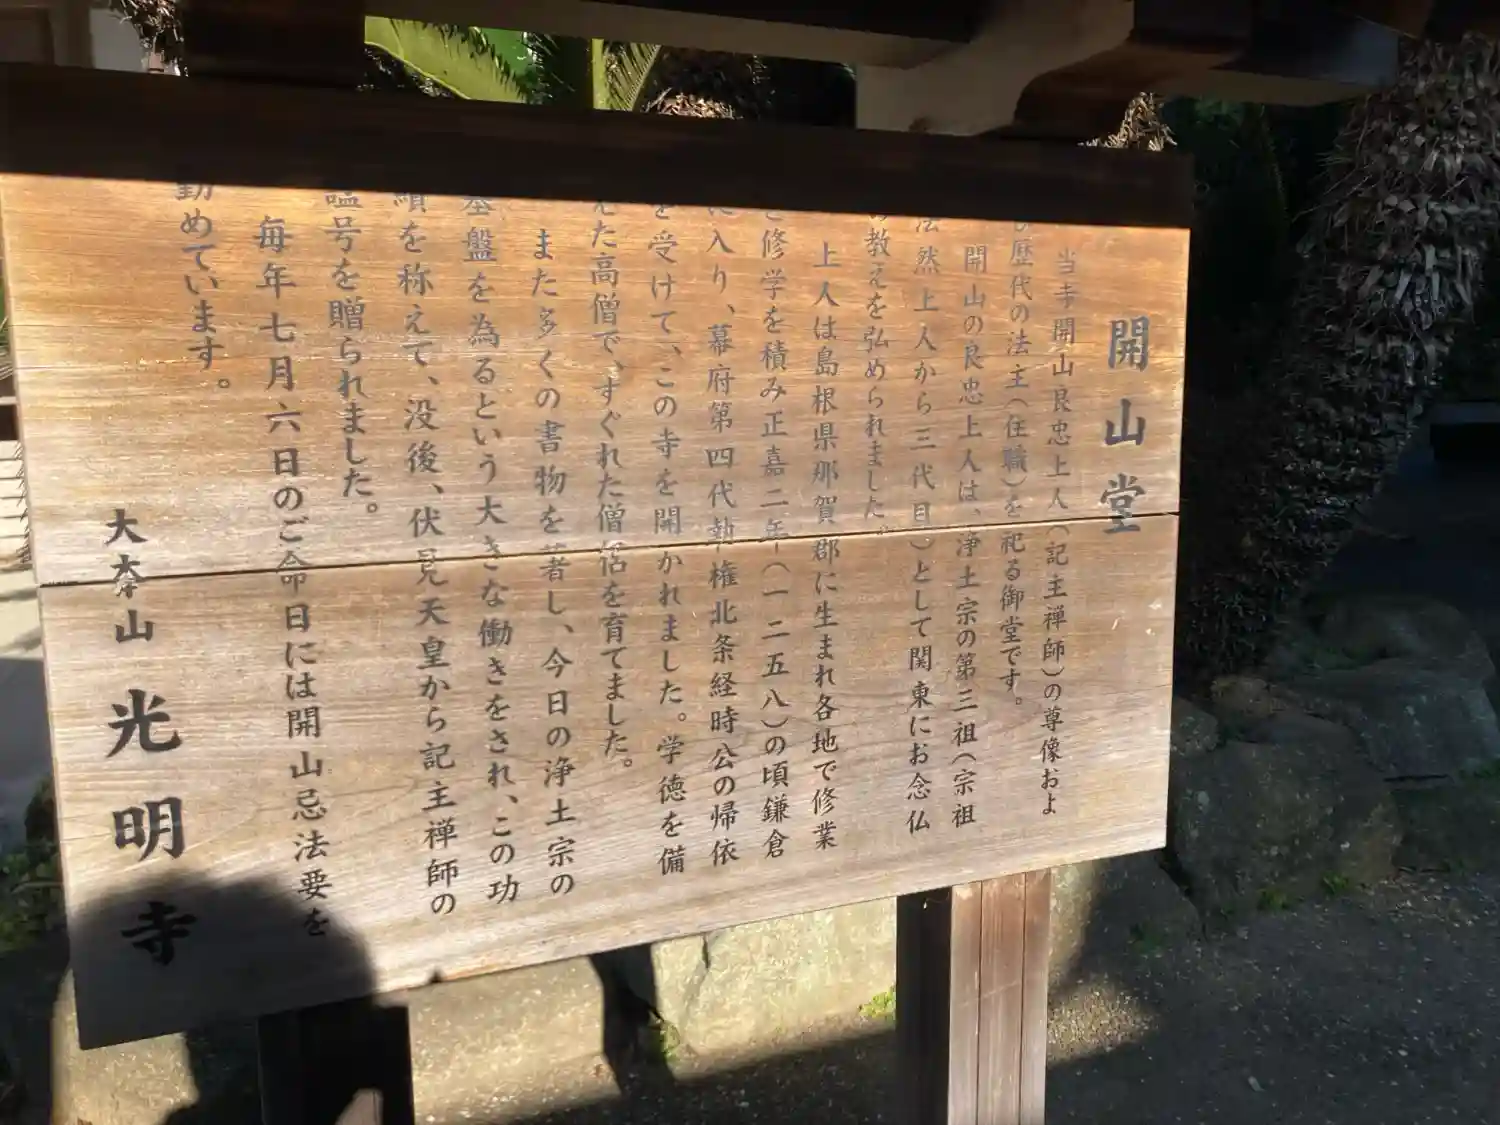 開山堂
当寺開山良忠上人(記主禅師)の尊像およ
び歴代の法主(住職)を祀る御堂です。
開山の良忠上人は、浄土宗の第三祖(宗祖
法然上人から三代目)として関東にお念仏
の教えを弘められました。
上人は島根県那賀郡に生まれ各地で修業
と修学を積み正嘉二年(一二五八)の頃鎌倉
に入り、幕府第四代執権北条経時公の帰依
を受けて、この寺を開かれました。学徳を備
えた高僧で、すぐれた僧侶を育てました。
また多くの書物を著し、今日の浄土宗の
基盤を為るという大きな働きをされ、この功
績を称えて、没後、伏見天皇から記主禅師の
諡号を贈られました。
毎年七月六日のご命日には開山忌法要を
勤めています。
大本山 光明寺